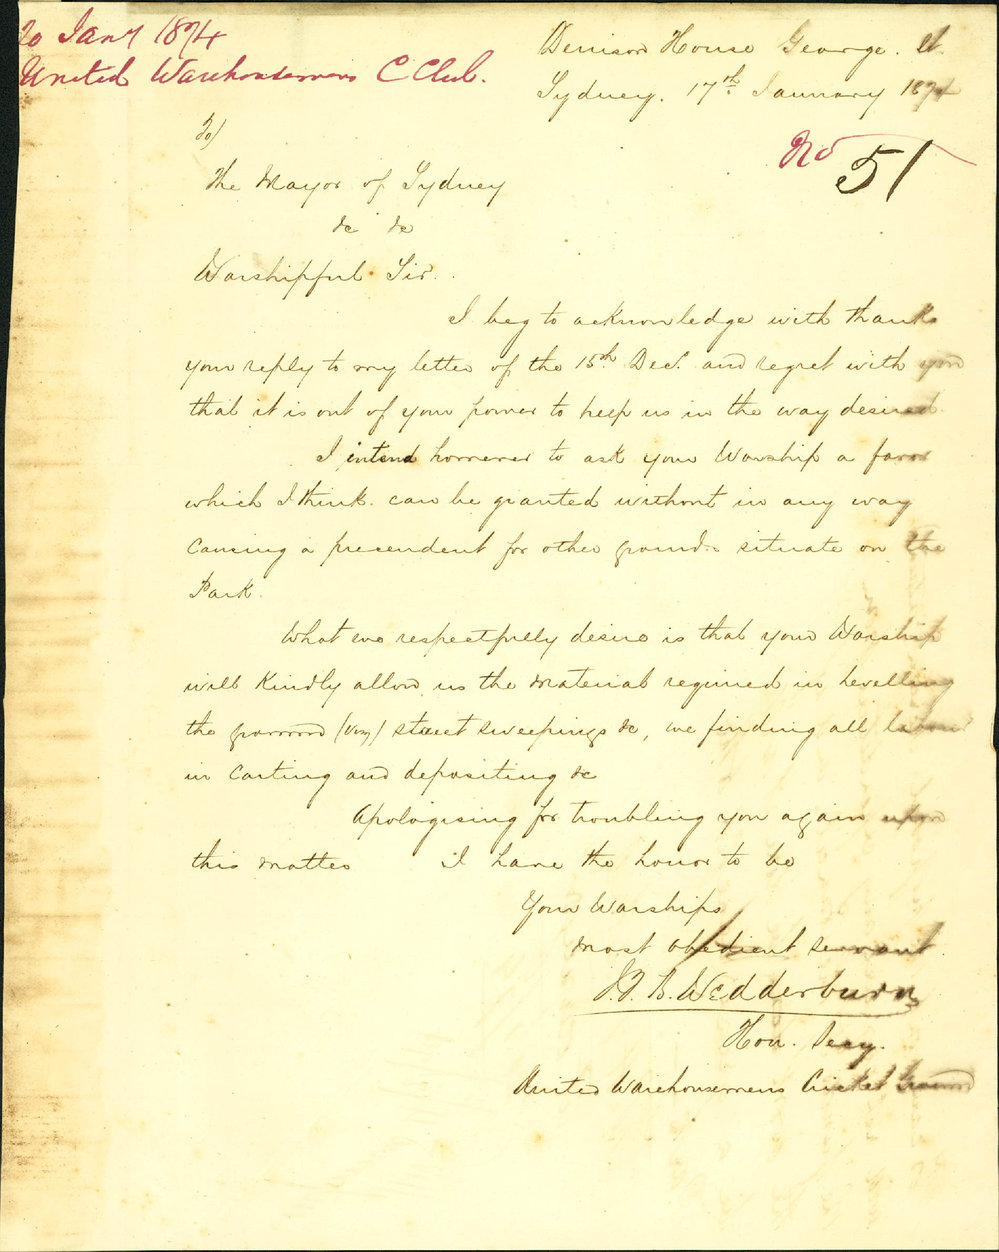 20 Jany 1874
United Warehousemens C Club.
Denison House George. St.
Sydney. 17th January 1874
No 51
To/
The Mayor of Sydney
&c &c
Worshipful Sir.
I beg to acknowledge with thanks
your reply to my letter of the 15th Dec. and regret with you
that it is out of your power to help us in the way desired.
I intend however to ask your Worship a favor
which I think can be granted without in any way
causing a precendent for other grounds situate on the
Park.
What we respectfully desire is that your Worship
will kindly allow us the material required in levelling
the ground (viz) street sweepings &c, we finding all labour
in carting and depositing &c
Apologising for troubling you again upon
this matter I have the honor to be
Your Worships
most obedient servant
B. Wedderburn
Hon. Secy.
United Warehousemens Cricket Ground